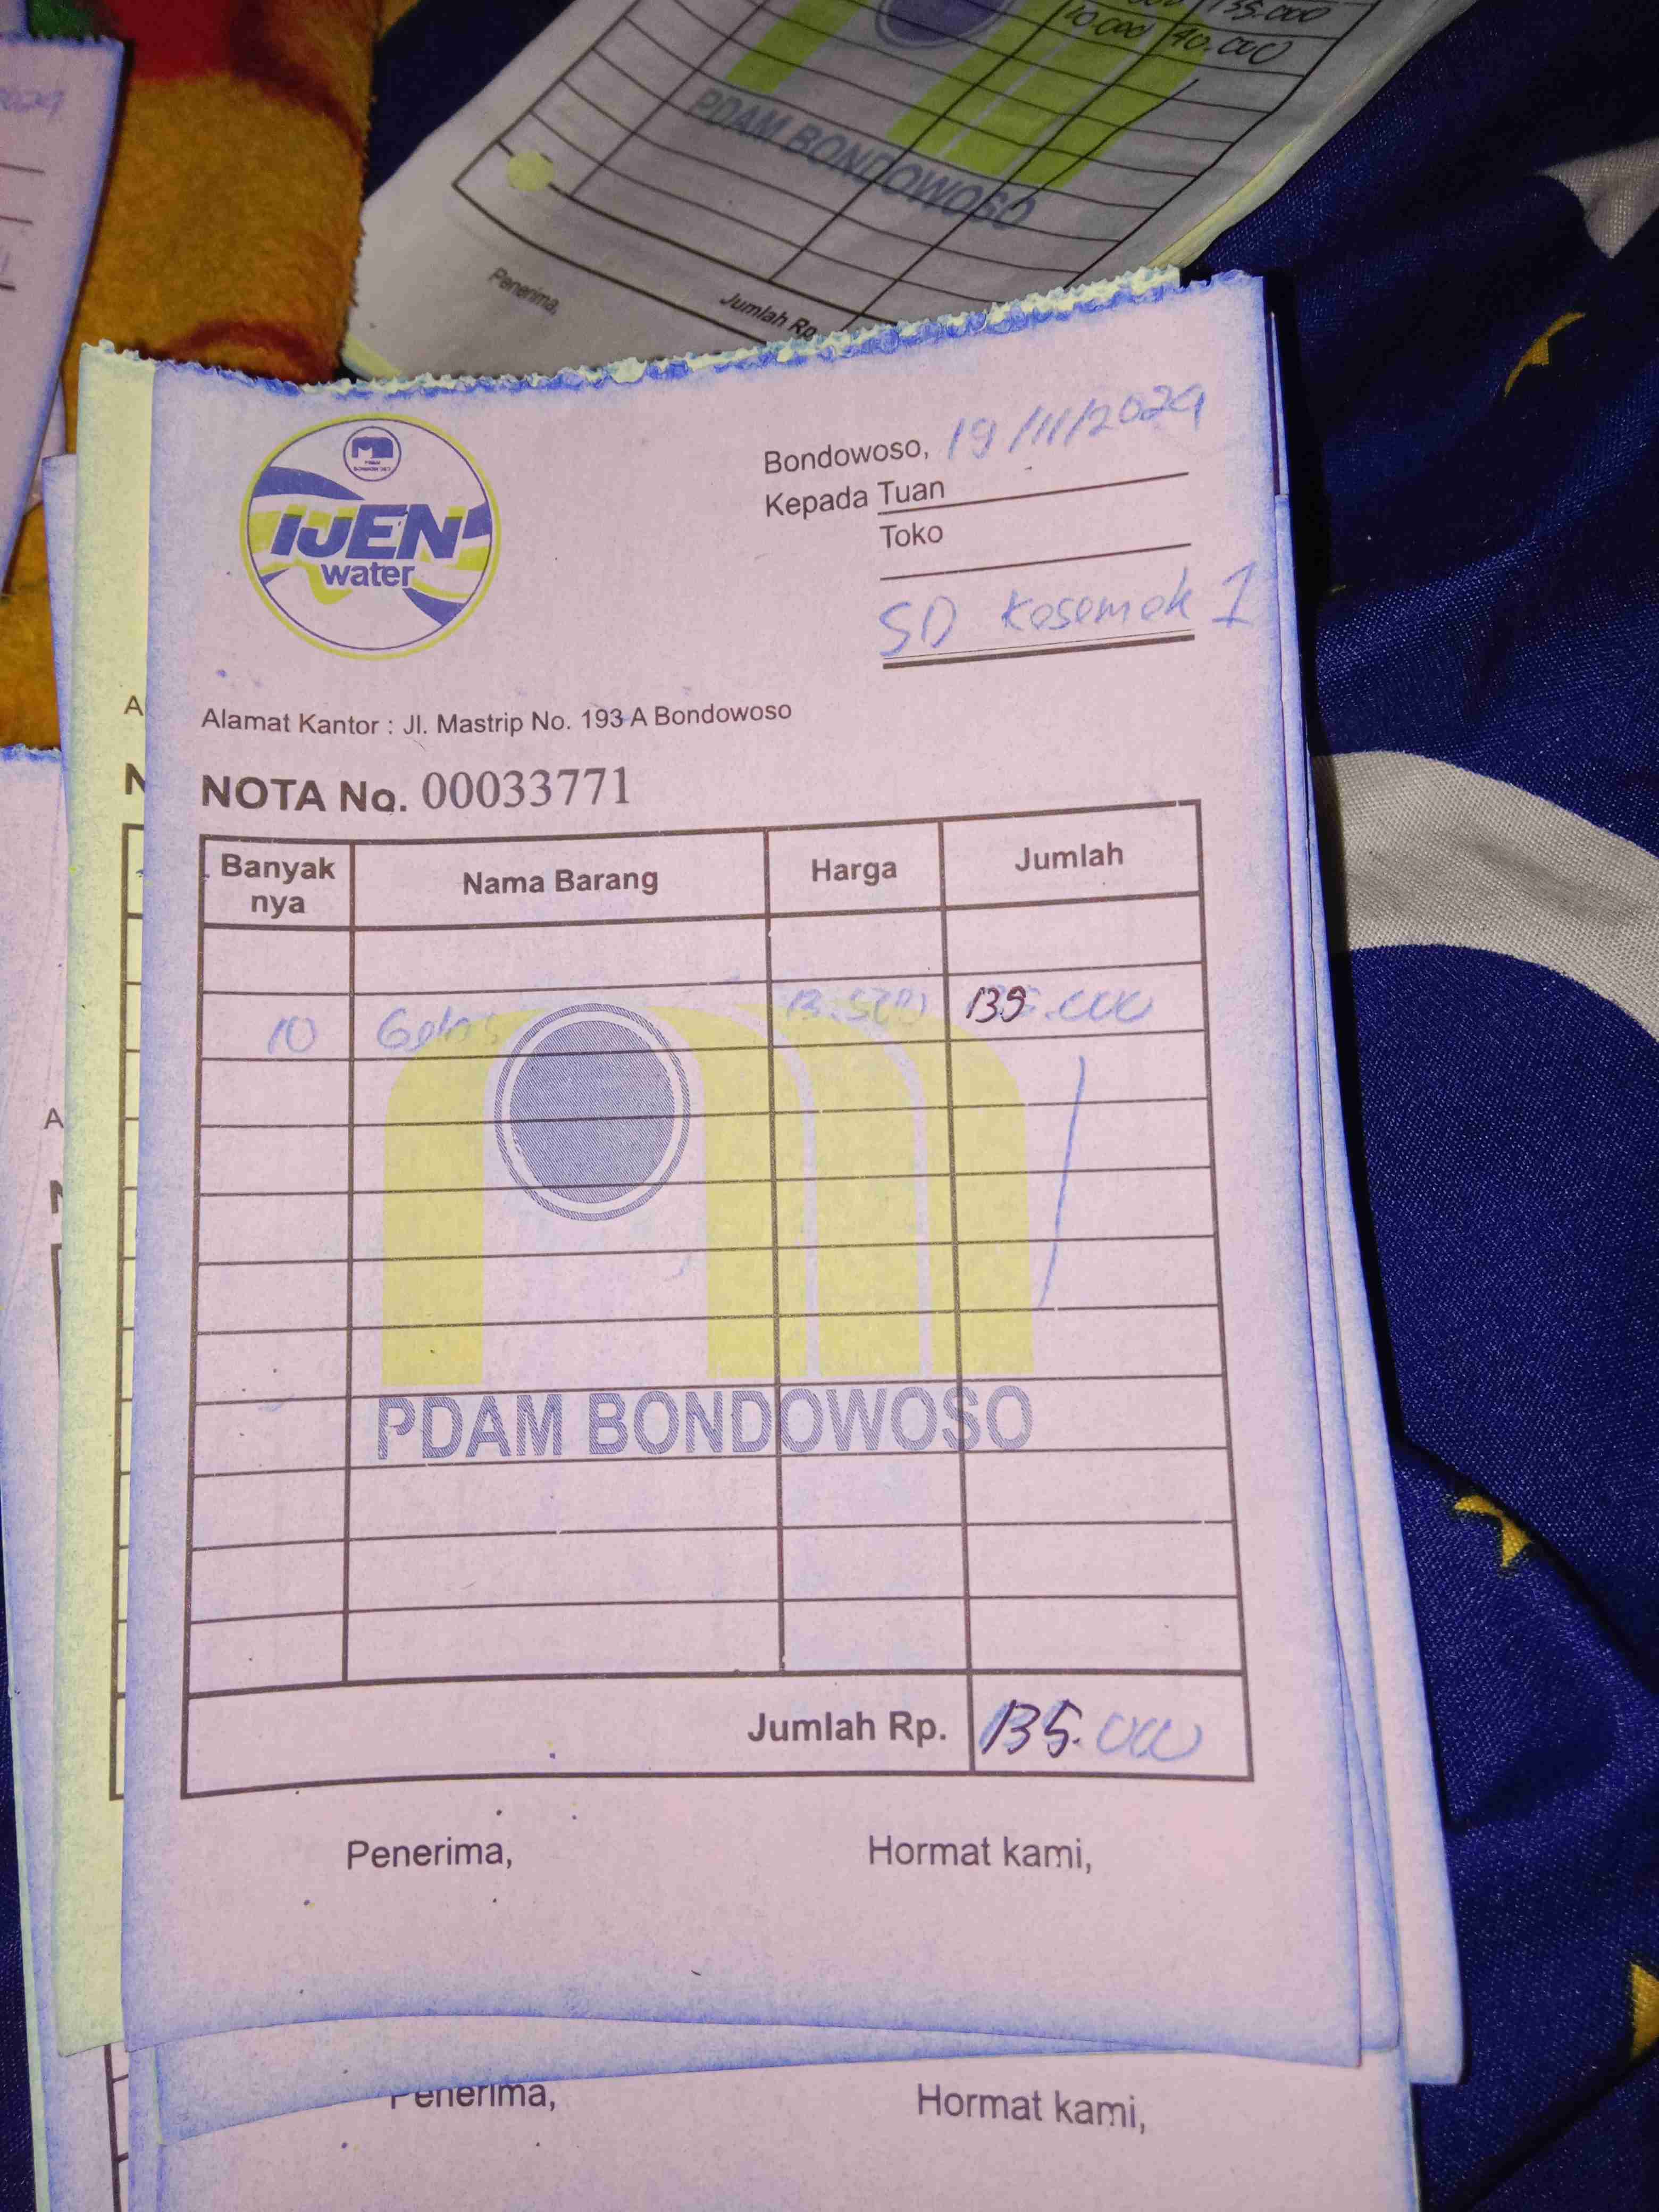 135.000
10.000 40.000
PDAM BONDOWOSO
Penerima,
Jumlah Rp
IJEN
water
Bondowoso, 19/11/2024
Kepada Tuan
Toko
SD Kesemek 1
Alamat Kantor : Jl. Mastrip No. 193 A Bondowoso
NOTA No. 00033771
Banyak nya Nama Barang Harga Jumlah
10 Gelas 13.500 135.000
PDAM BONDOWOSO
Jumlah Rp. 135.000
Penerima, Hormat kami,
Penerima, Hormat kami,